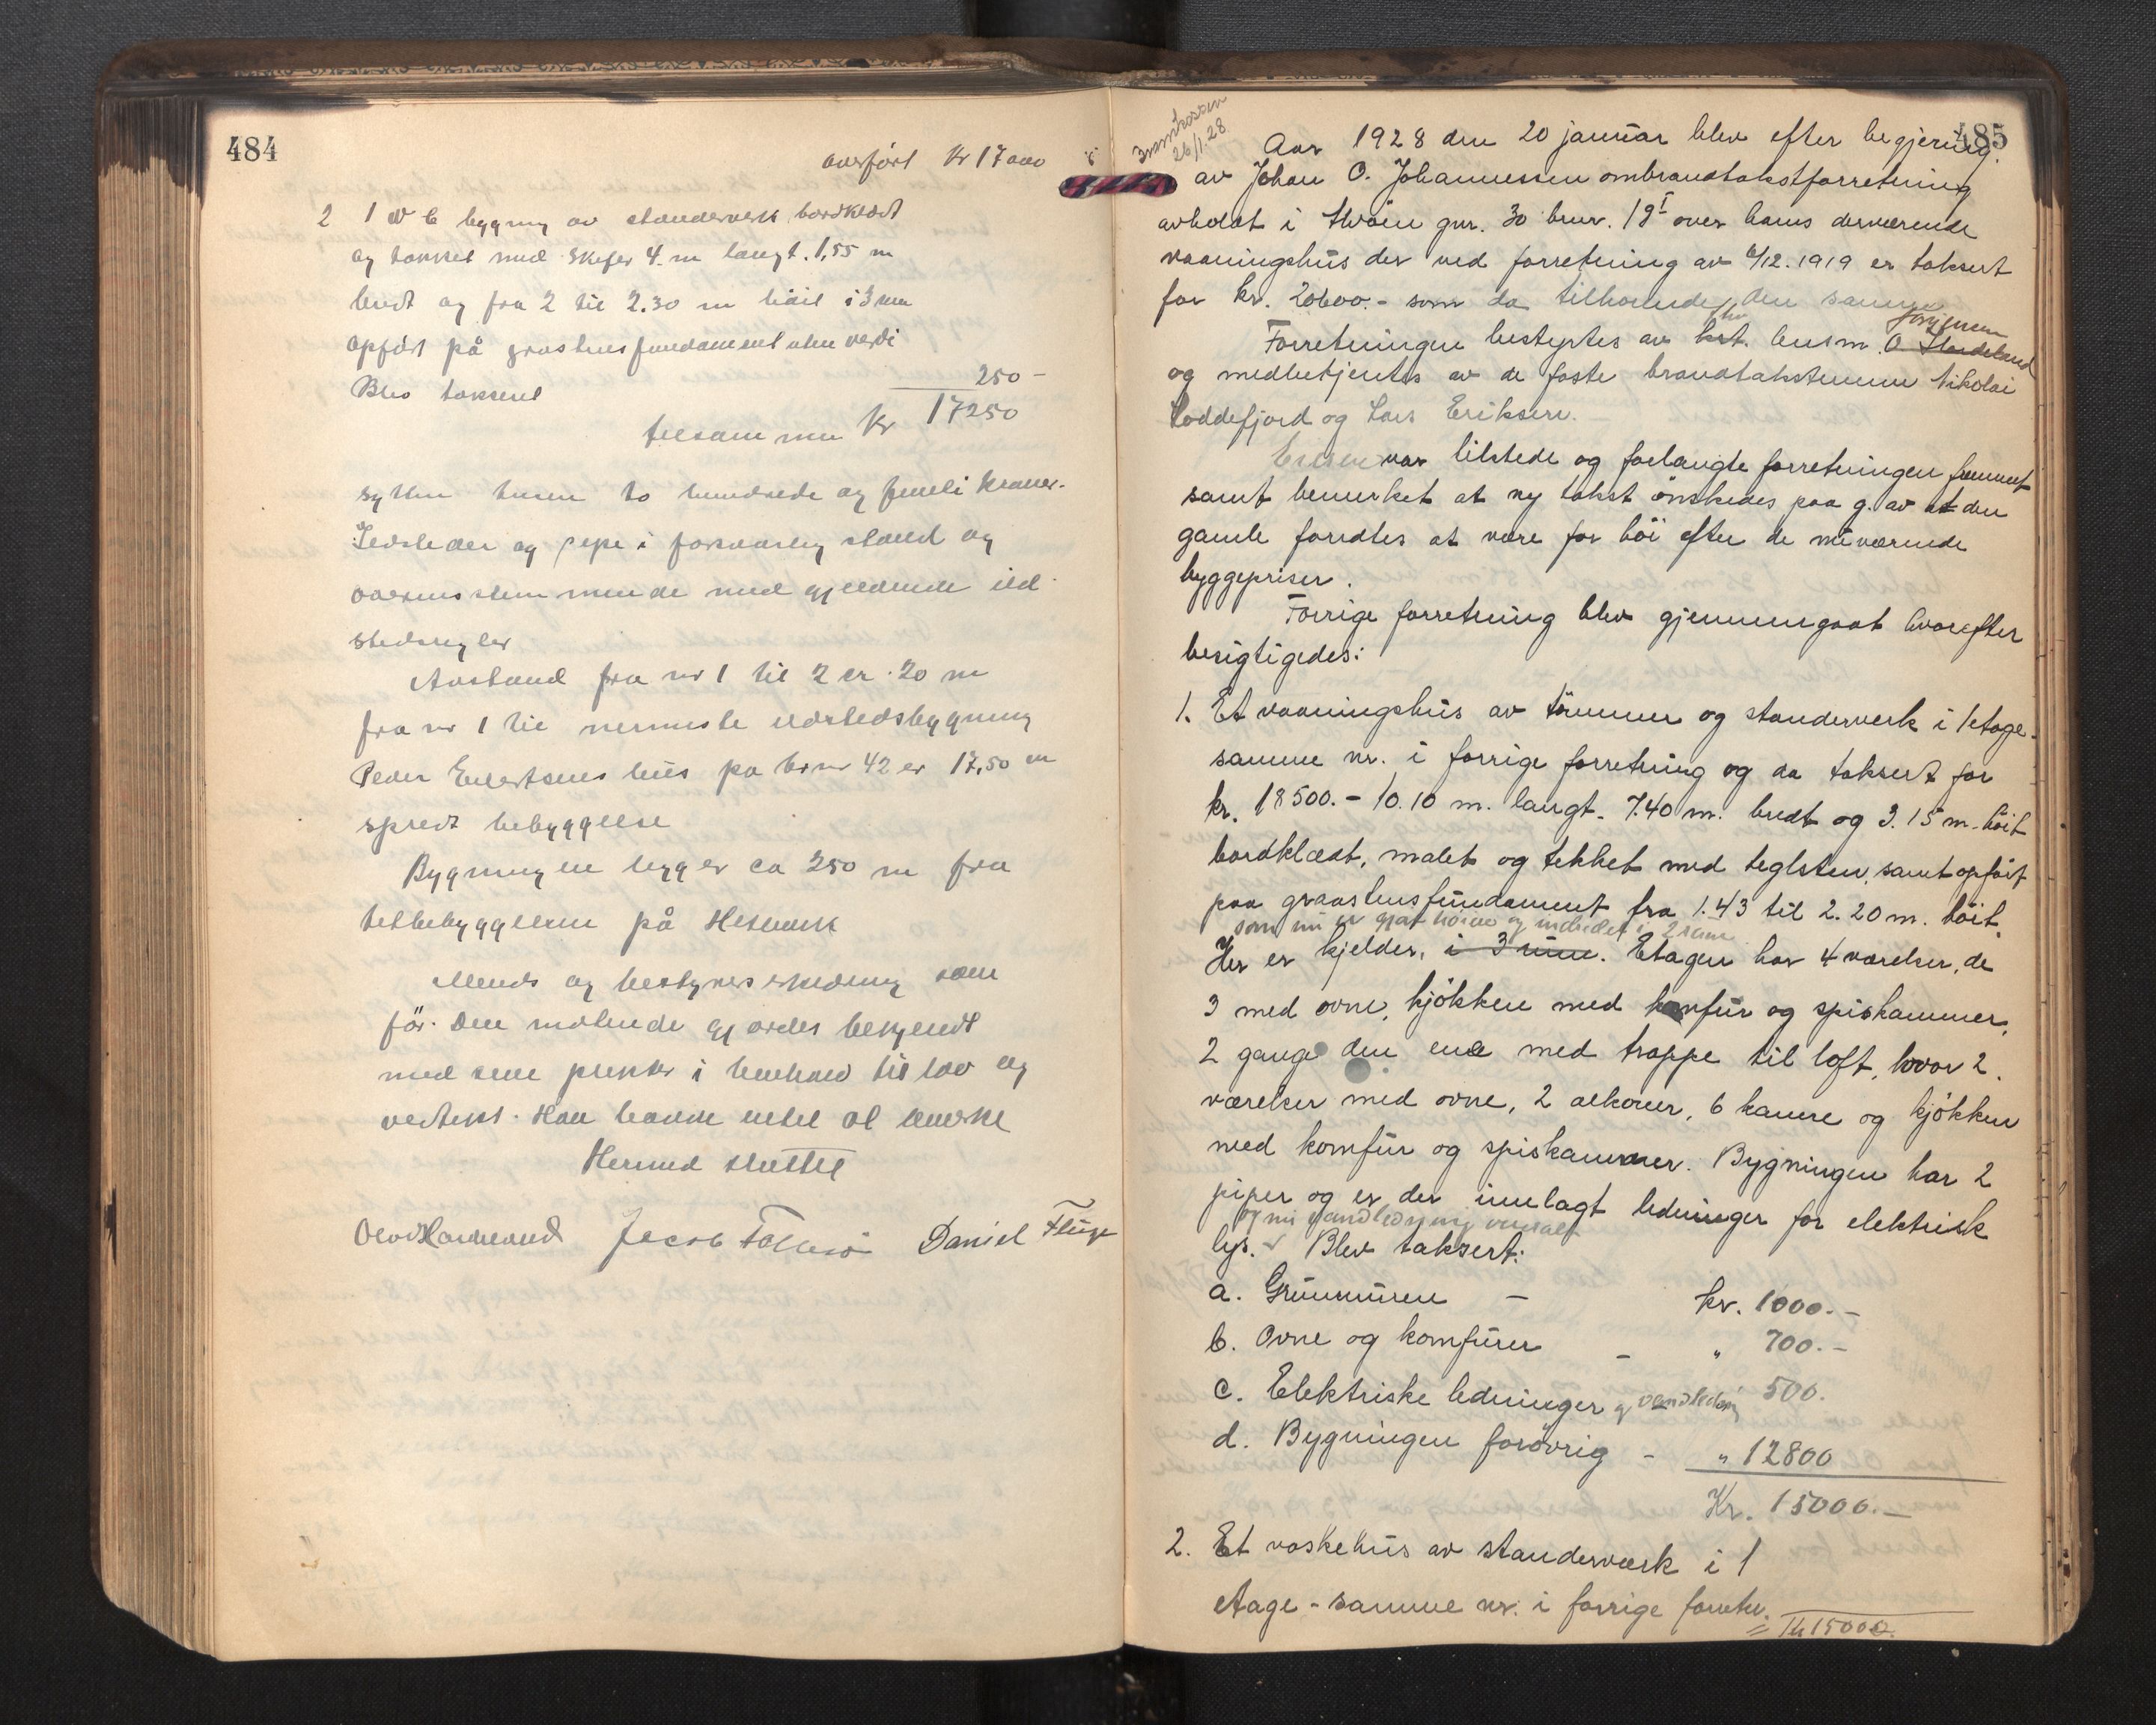 484
overført Kr 17000
2 1 W C bygning av standerverk bordklædt
og tækket med skifer 4 m langt. 1,55 m
bredt og fra 2 til 2.30 m höit i 3 rum
opført på gråstensfundament uten verdi
Blev taksert 250 -
tilsammen Kr 17250
sytten tusen to hundrede og femti kroner.
Ildsteder og pipe i forsvarlig stand og
overensstemmende med gjeldende ild
stedsregler
Avstand fra nr 1 til 2 er 20 m
fra nr 1 til nermeste ildstedsbygning
Peder Eilertsens hus på brnr 42 er 17,50 m
spredt bebyggelse
Bygningene ligger ca 250 m fra
tetbebyggelsen på
Mends og bestyrers som
för. Den mötende gjordes bekjendt
med sine plikter i henhold til lov og
vedtekt. Han hadde intet at bemerke
Hermed sluttet
Olav Hordeland Jacob Daniel
485
26/1.28.
Aar 1928 den 20 januar blev efter begjering
av Johan O. Johannessen ombrandtakstforretning
avholdt i gnr. 30 brnr. 19 over hans derværende
vaaningshus der ved forretning av 6/12.1919 er taksert
for kr. 20600.- som da tilhørende den samme
Forretningen bestyrtes av hst. lensm. O Hordeland
og medbetjentes av de faste brandtakstmenn Nikolai
Loddefjord og Lars Eriksen.
Eieren var tilstede og forlangte forretningen fremmet
samt bemerket at ny takst önskedes paa g. av at den
gamle forndtes at være for höi efter de nuværende
byggepriser.
Forrige forretning blev gjennemgaat hvorefter
besigtigedes:
1. Et vaaningshus av tömmer og standerverk i 1 etage-
samme nr. i forrige forretning og da taksert for
kr. 18500.- 10.10 m. langt. 7.40 m. bredt og 3.15 m. höit
bordklædt, malet og tekket med teglsten, samt opfört
paa graastensfundament fra 1.43 til 2.20 m. höit.
som nu er gjort höiere og indredet i 2 rum
Her er kjelder, i 3 rum. Etagen har 4 værelser, de
3 med ovne, kjökken med komfür og spiskammer,
2 gange den ene med trappe til loft, hvor 2
værelser med ovne, 2 alkover, 6 kamre og kjökken
med komfür og spiskammer. Bygningen har 2
piper og er der innlagt ledninger for elektrisk
og nu vandledning
lys. Blev taksert:
a. Grunmuren - kr. 1000.-
b. Ovne og komfürer - " 700.-
c. Elektriske ledninger og vandledning 500.
d. Bygningen forövrig - " 12800
Kr. 15000.-
2. Et vaskehus av standerværk i 1
etage - samme nr. i forrige forretn.
15000.